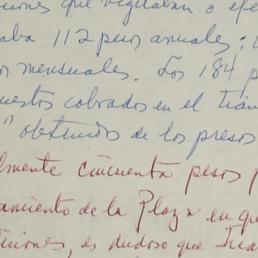 ciones que vigilaban o efe
aba 112 pesos anuales:
os mensuales. Los 184 p
uestos cobrados en el trán
" obtenidos de los presos
lmente cincuenta pesos p
amiento de la Plaza en que
ciones, es dudoso que